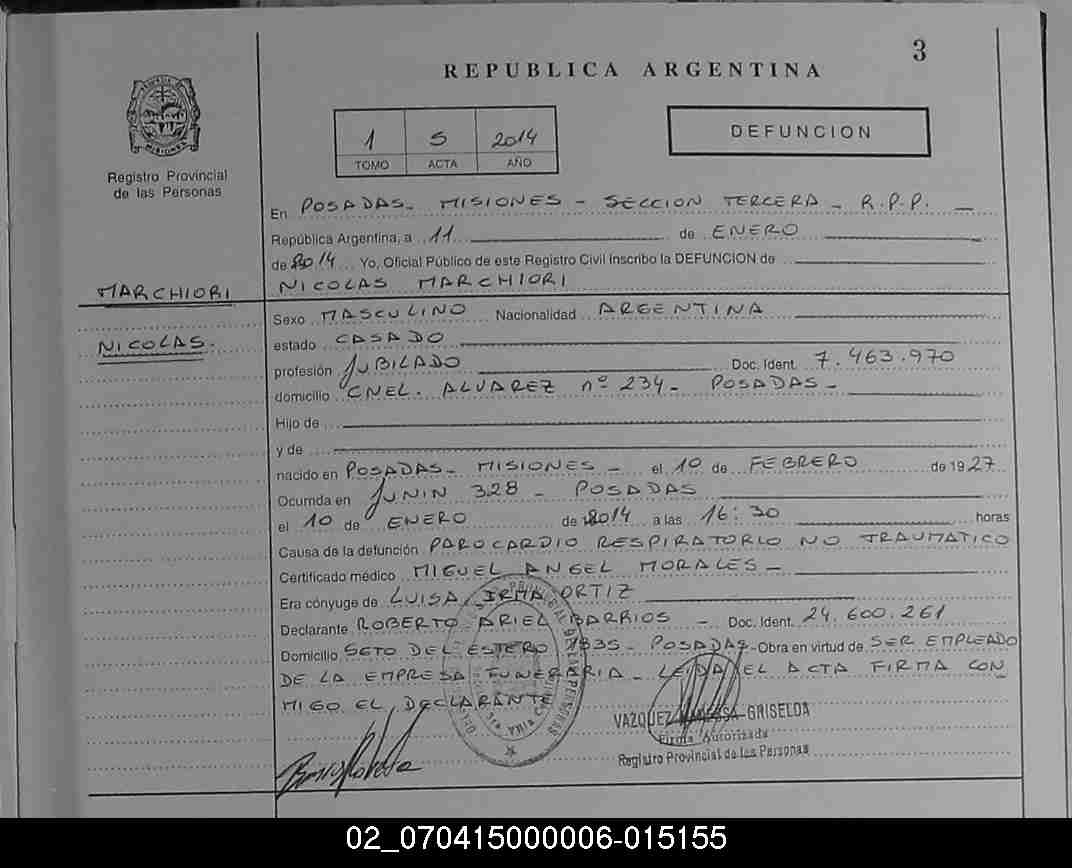 3
REPUBLICA ARGENTINA
MISIONES
Registro Provincial
de las Personas
1 5 2014
TOMO ACTA AÑO
DEFUNCION
En POSADAS- MISIONES - SECCION TERCERA - R.P.P. -
República Argentina, a 11 de ENERO
de 2014 Yo, Oficial Público de este Registro Civil inscribo la DEFUNCION de
MARCHIORI
NICOLAS MARCHIORI
Sexo MASCULINO Nacionalidad ARGENTINA
NICOLAS.
estado CASADO
profesión JUBILADO Doc. Ident. 7.463.970
domicilio CNEL. ALVAREZ nº 234- POSADAS-
Hijo de
y de
nacido en POSADAS- MISIONES - el 10 de FEBRERO de 1927
Ocurrida en JUNIN 328 - POSADAS
el 10 de ENERO de 2014 a las 16:30 horas
Causa de la defunción PAROCARDIO RESPIRATORIO NO TRAUMATICO
Certificado médico MIGUEL ANGEL MORALES-
Era cónyuge de LUISA IRMA ORTIZ
Declarante ROBERTO ARIEL BARRIOS - Doc. Ident. 24.600.261
Domicilio SETO DEL ESTERO 1835- POSADAS-Obra en virtud de SER EMPLEADO
DE LA EMPRESA FUNERARIA- LEIDA EL ACTA FIRMA CON
MIGO EL DECLARANTE
VAZQUEZ VANESSA GRISELDA
Firma Autorizada
Registro Provincial de las Personas
02_070415000006-015155